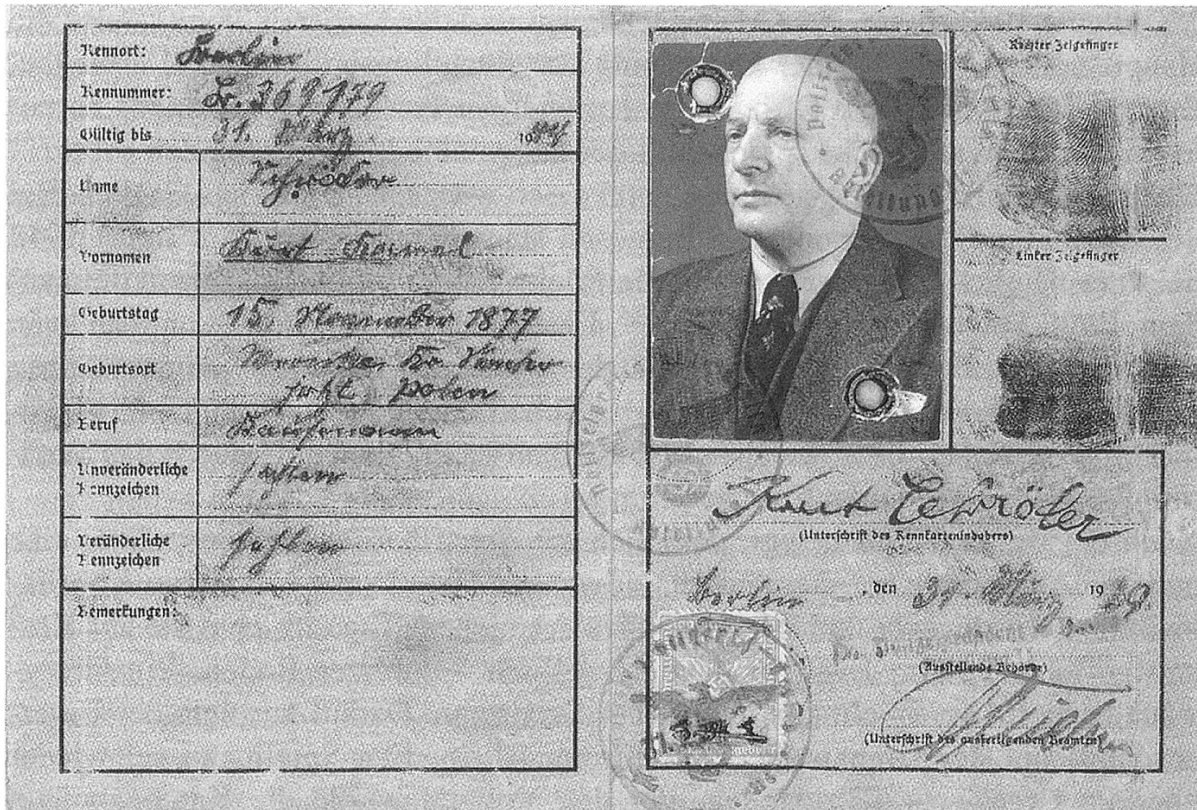 Kennort: Berlin
Kennummer: Br. 369179
Gültig bis 31. März 1944
Name Schröder
Vornamen Kurt
Geburtstag 15. November 1877
Geburtsort
Polen
Beruf Kaufmann
Unveränderliche
Kennzeichen fehlen
Veränderliche
Kennzeichen fehlen
Bemerkungen:
Rechter Zeigefinger
Linker Zeigefinger
Kurt Schröder
(Unterschrift des Kennkarteninhabers)
Berlin, den 31. März 1939.
Der Polizeipräsident
(Ausstellende Behörde)
(Unterschrift des ausfertigenden Beamten)